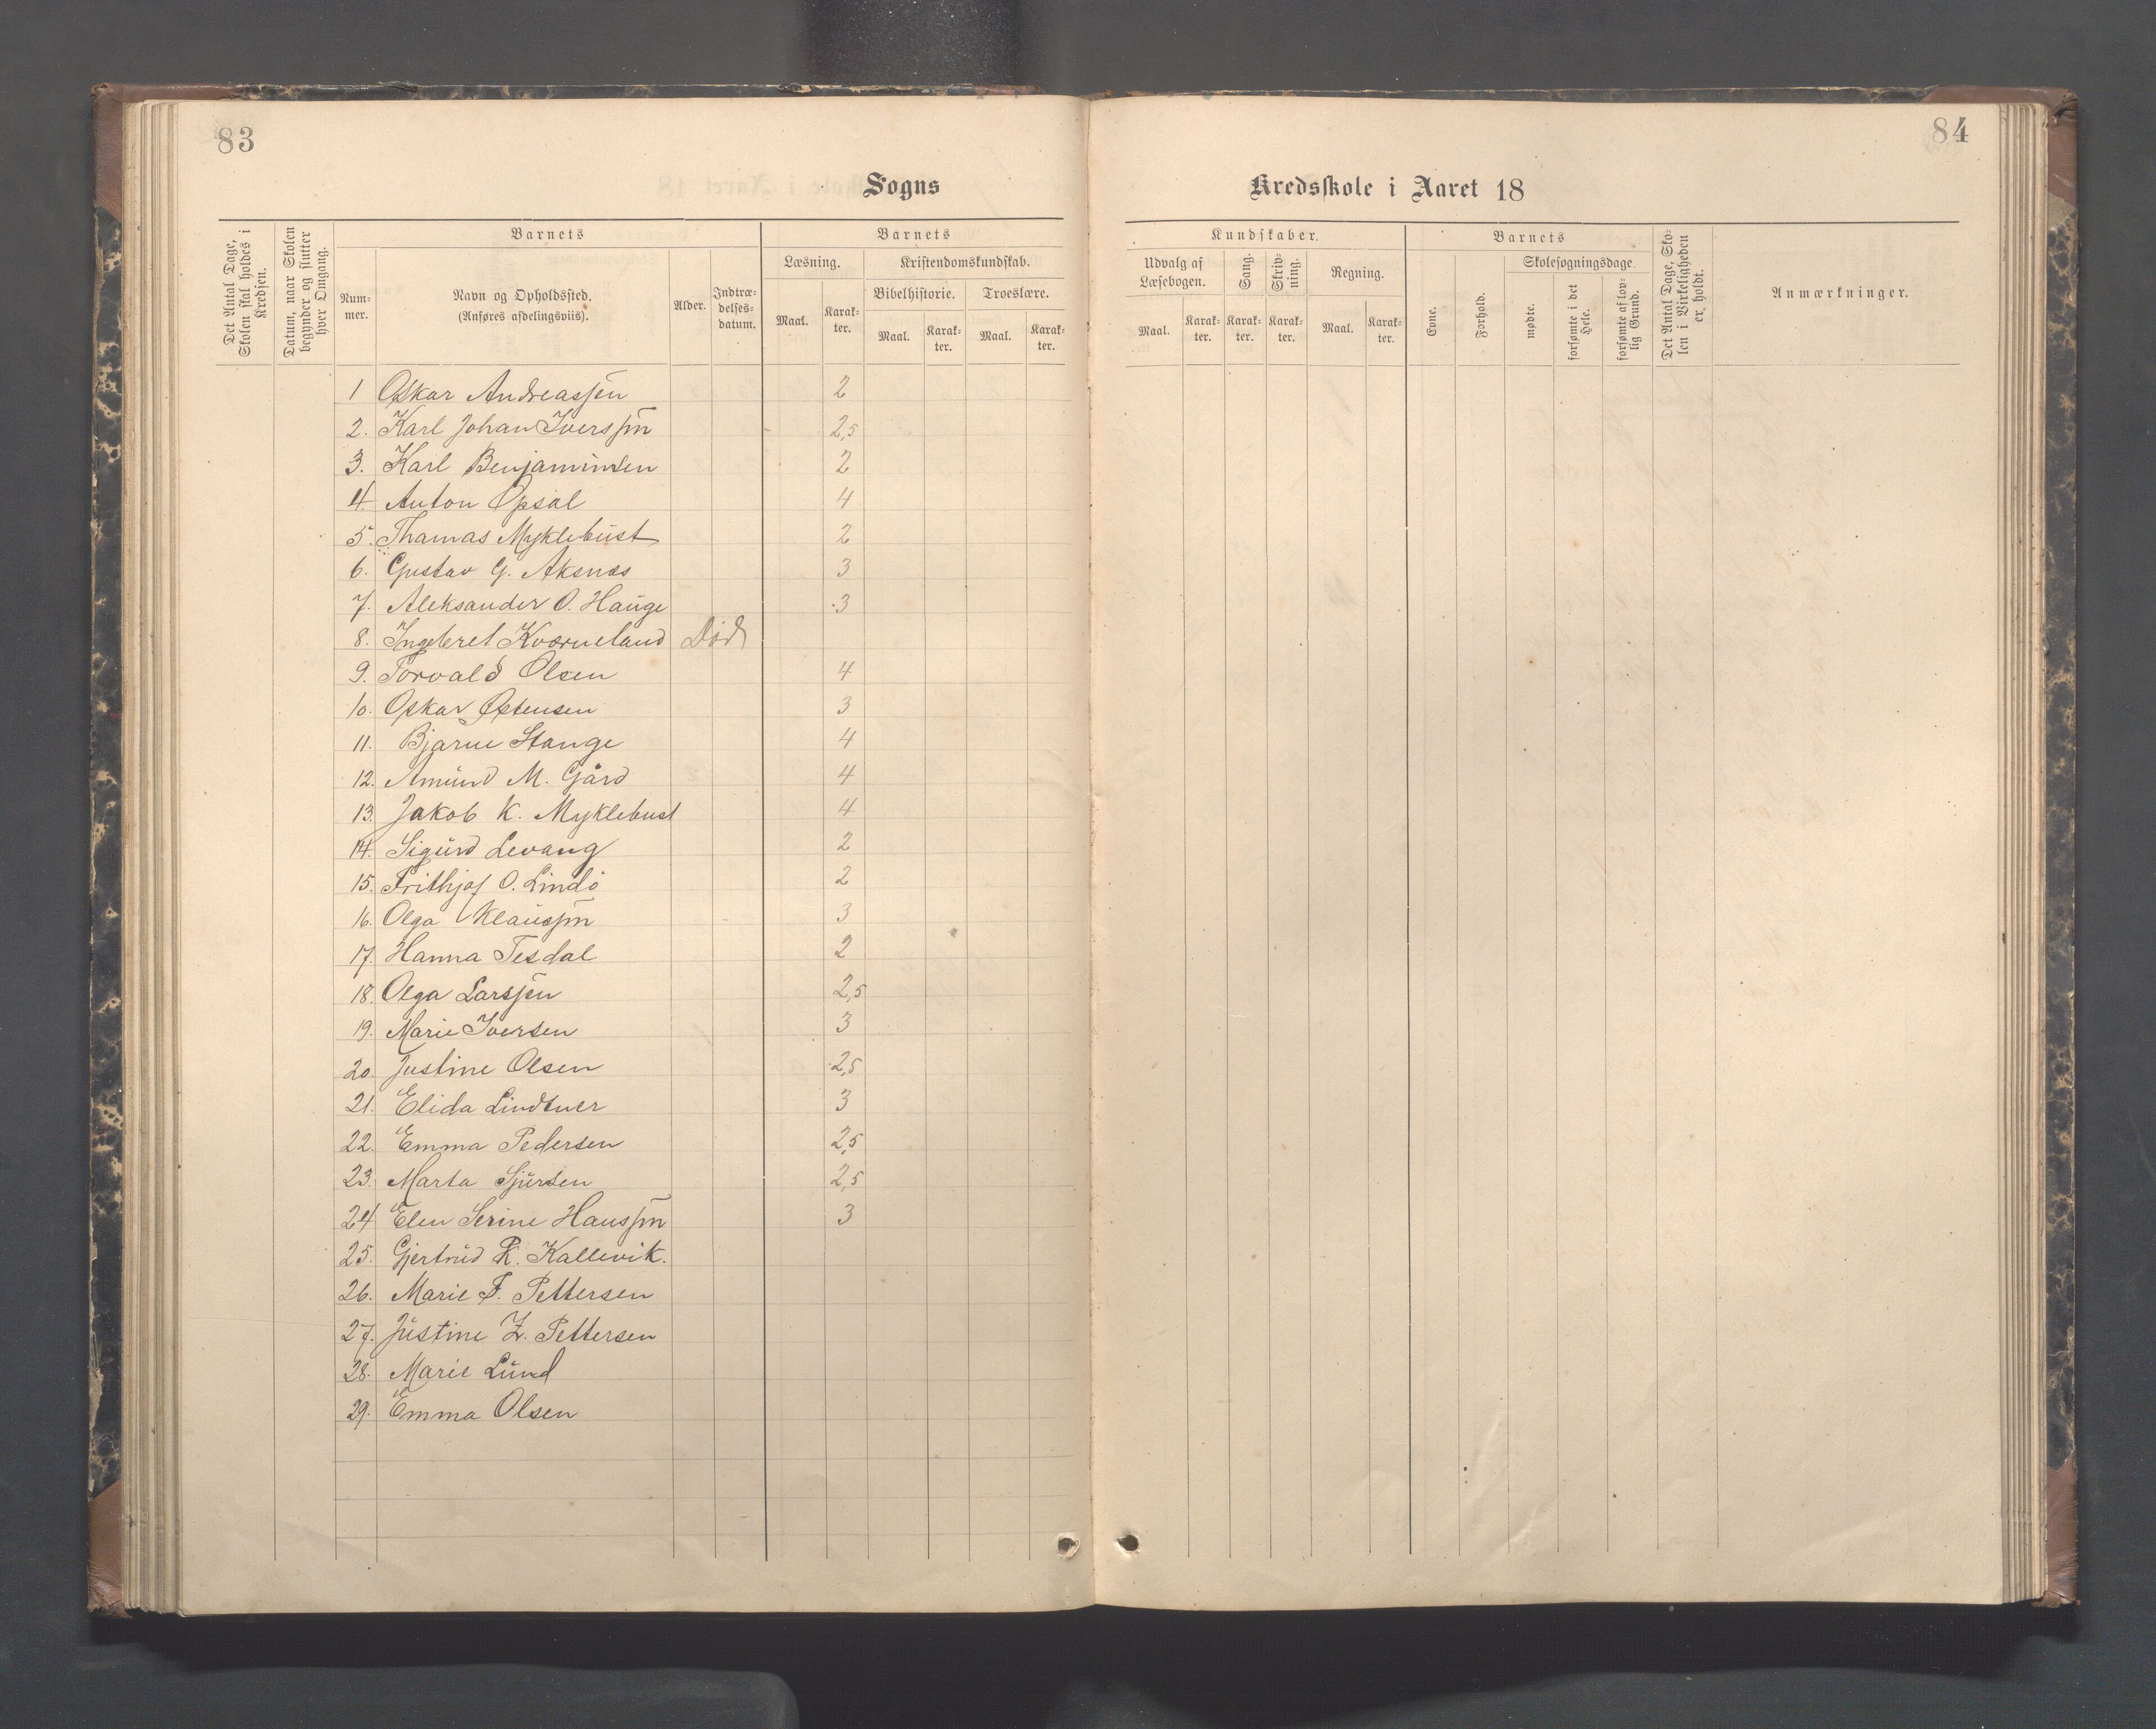 83
84
Sogns
Kredsskole i Aaret 18
Det Antal Dage, Skolen skal holdes i Kredsen.
Datum, naar Skolen begynder og slutter hver Omgang.
Barnets
Num-mer.
Navn og Opholdssted.
(Anføres afdelingsviis).
Alder.
Indtræ-delses-datum.
Barnets
Læsning.
Maal.
Karak-ter.
Kristendomskundskab.
Bibelhistorie.
Maal.
Karak-ter.
Troeslære.
Maal.
Karak-ter.
Kundskaber.
Udvalg af Læsebogen.
Maal.
Karak-ter.
Sang.
Karak-ter.
Skriv-ning.
Karak-ter.
Regning.
Maal.
Karak-ter.
Barnets
Evne.
Forhold.
Skolesøgningsdage.
mødte.
forsømte i det Hele.
forsømte af lov-lig Grund.
Det Antal Dage, Sko-len i Virkeligheden er holdt.
Anmærkninger.
1 Oskar Andreassen 2
2. Karl Johan Iverssen 2,5
3. Karl Benjaminsen 2
4. Anton Opsal 4
5. Thomas Myklebust 2
6. Gustav G. Aksnes 3
7. Aleksander O. Hauge 3
8. Ingebret Kværneland Død
9. Torvald Olsen 4
10. Oskar Østensen 3
11. Bjarne Stange 4
12. Amund M. Gård 4
13. Jakob K. Myklebust 4
14. Sigurd Levang 2
15. Frithjof O. Lindö 2
16. Olga Klaussen 3
17. Hanna Tesdal 2
18. Olga Larssen 2,5
19. Marie Iversen 3
20. Justine Olsen 2,5
21. Elida Lindtner 3
22. Emma Pedersen 2,5
23. Marta Sjursen 2,5
24 Elen Serine Hanssen 3
25. Gjertrud R. Kallevik.
26. Marie F. Pettersen
27. Justine Z. Pettersen
28. Marie Lund
29. Emma Olsen